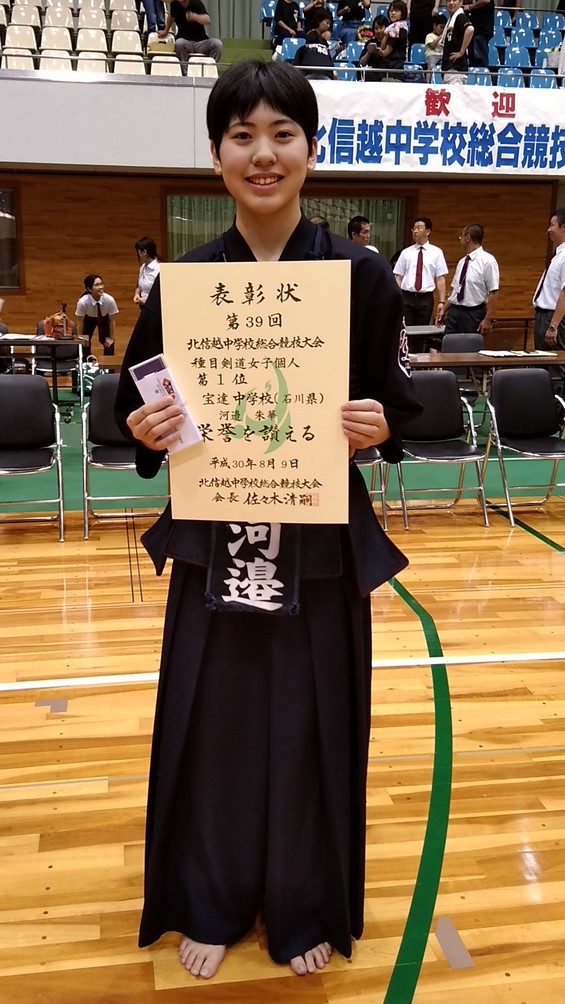 歓迎
北信越中学校総合競技
表彰状
第39回
北信越中学校総合競技大会
種目剣道女子個人
第1位
宝達中学校(石川県)
河邉 朱華
栄誉を讃える
平成30年8月9日
北信越中学校総合競技大会
会長 佐々木清嗣
河邉